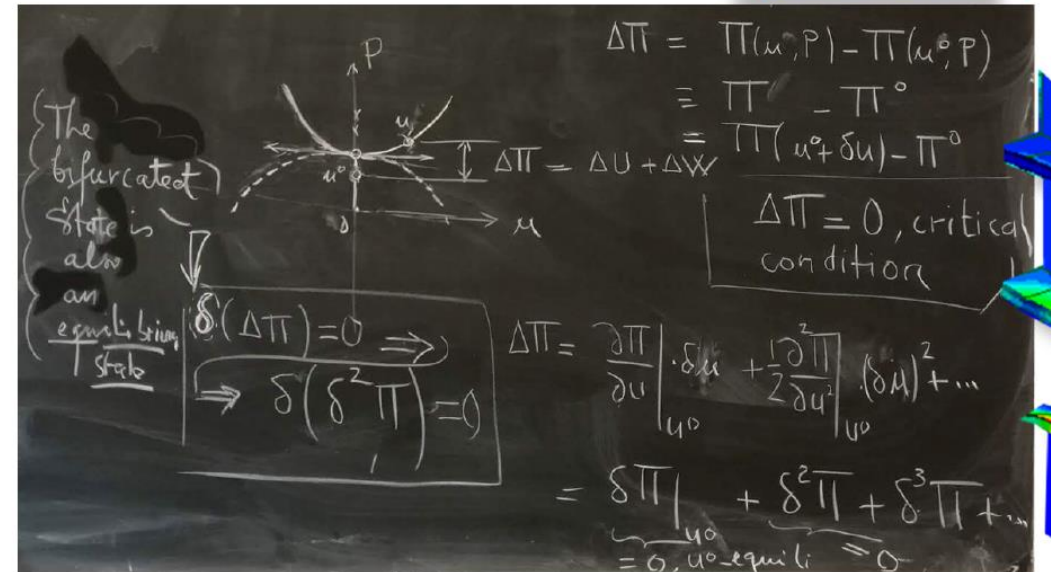 The
bifurcated
state is
also
an
equilibrium
state
P
u
u°
0
u
ΔΠ = ΔU + ΔW
δ(ΔΠ) = 0 ⇒
⇒ δ(δ²Π) = 0
ΔΠ = Π(u, P) − Π(u°, P)
≡ Π − Π°
= Π(u° + δu) − Π°
ΔΠ = 0, critical
condition
ΔΠ = ∂Π/∂u |u° · δu + 1/2 ∂²Π/∂u² |u° · (δu)² + ...
= δΠ|u° + δ²Π + δ³Π + ...
= 0, u°-equili = 0